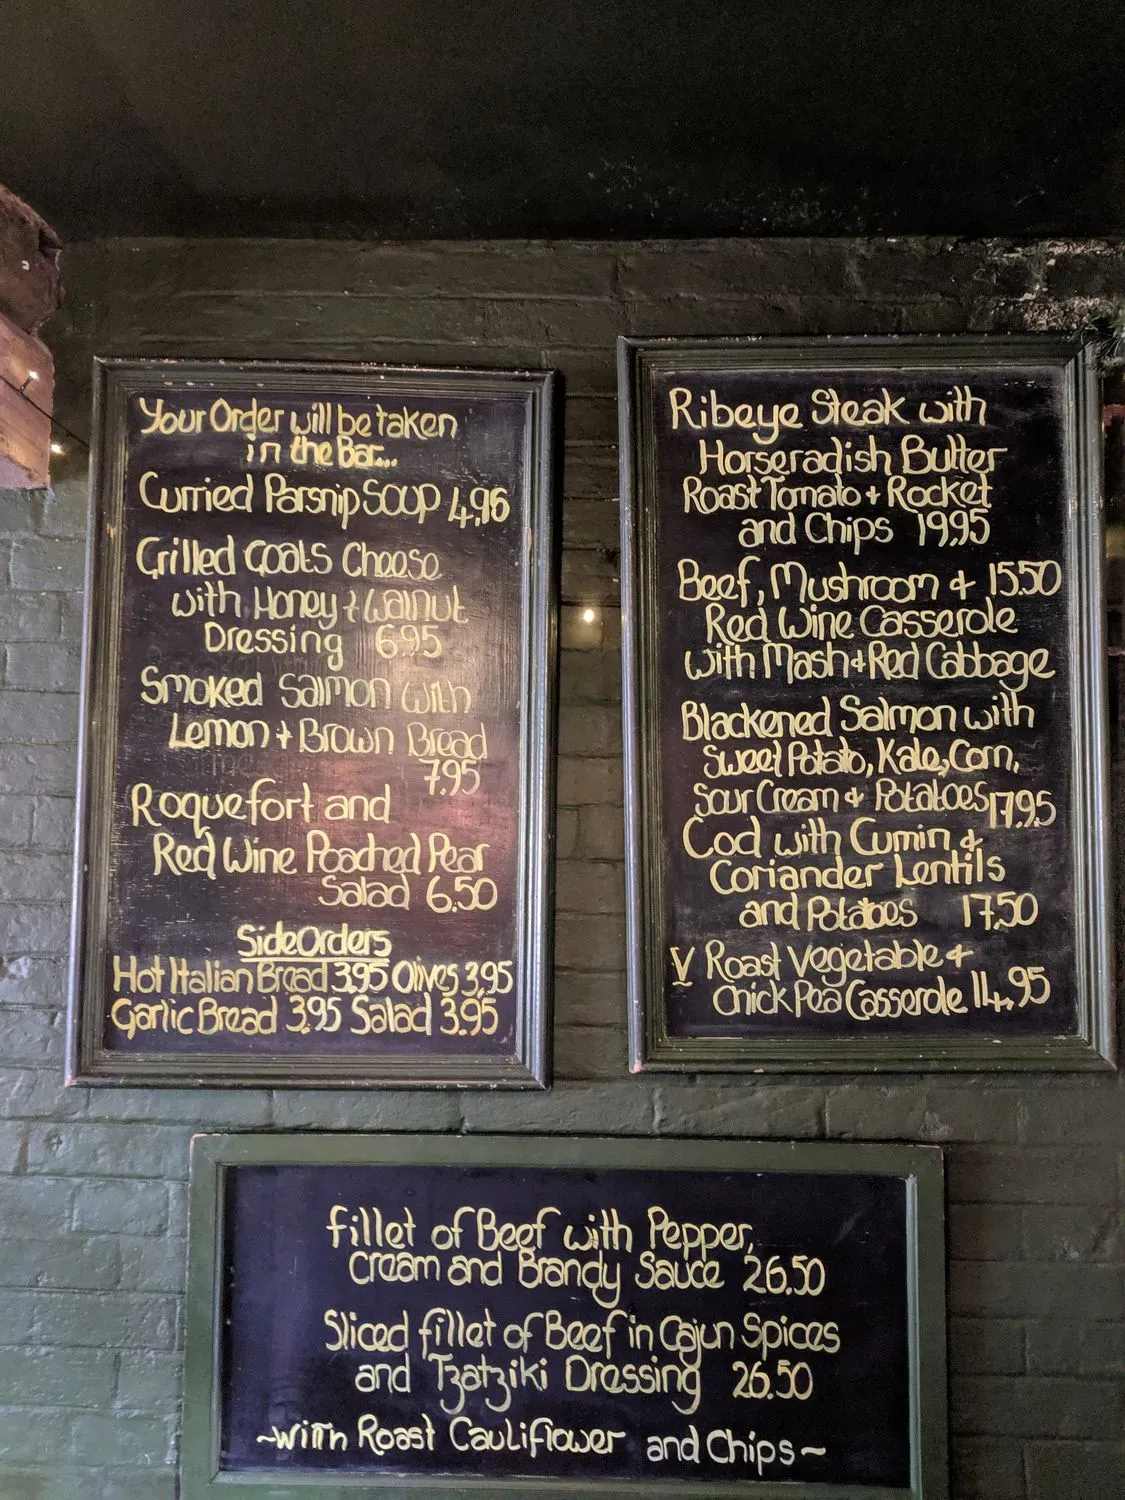 Your Order will be taken
in the Bar...
Curried Parsnip Soup 4.95
Grilled Goats Cheese
with Honey + Walnut
Dressing 6.95
Smoked Salmon with
Lemon + Brown Bread
7.95
Roquefort and
Red Wine Poached Pear
Salad 6.50
Side Orders
Hot Italian Bread 3.95 Olives 3.95
Garlic Bread 3.95 Salad 3.95
Ribeye Steak with
Horseradish Butter
Roast Tomato + Rocket
and Chips 19.95
Beef, Mushroom & 15.50
Red Wine Casserole
with Mash + Red Cabbage
Blackened Salmon with
Sweet Potato, Kale, Corn,
Sour Cream & Potatoes 17.95
Cod with Cumin &
Coriander Lentils
and Potatoes 17.50
V Roast Vegetable +
Chick Pea Casserole 14.95
Fillet of Beef with Pepper,
Cream and Brandy Sauce 26.50
Sliced fillet of Beef in Cajun Spices
and Tzatziki Dressing 26.50
~with Roast Cauliflower and Chips~